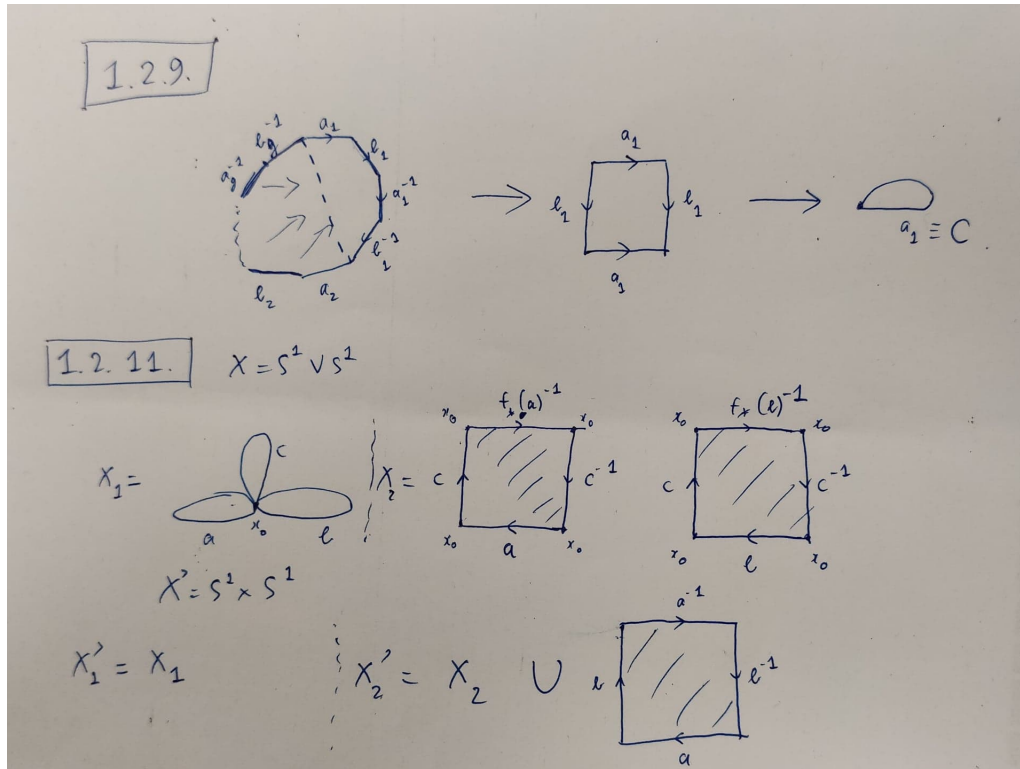 1.2.9.
a_g^{-1} b_g^{-1} a_1 b_1 a_1^{-1} b_1^{-1} a_2 b_2
a_1 b_1 a_1 b_1
a_1 ≡ C
1.2.11. X = S^1 ∨ S^1
X_1 = a x_0 b c
X_2 = x_0 f_*(a)^{-1} x_0 c c^{-1} x_0 a x_0
x_0 f_*(b)^{-1} x_0 c c^{-1} x_0 b x_0
X' = S^1 × S^1
X'_1 = X_1
X'_2 = X_2 ∪ a^{-1} b b^{-1} a